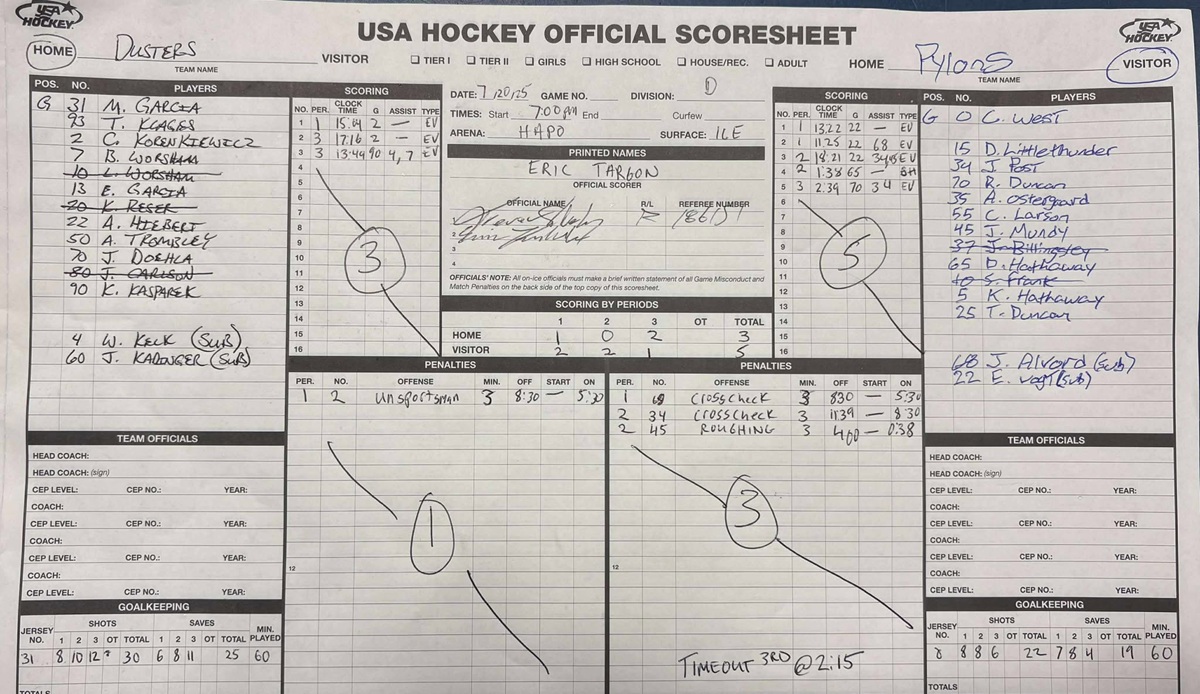 USA HOCKEY
USA HOCKEY OFFICIAL SCORESHEET
USA HOCKEY
HOME DUSTERS VISITOR
TEAM NAME
☐ TIER I ☐ TIER II ☐ GIRLS ☐ HIGH SCHOOL ☐ HOUSE/REC. ☐ ADULT
HOME Pylons VISITOR
TEAM NAME
POS. NO. PLAYERS
G 31 M. GARCIA
93 T. KLAGES
2 C. KORENKIEWICZ
7 B. WORSHAM
10 L. WORSHAM
13 E. GARCIA
20 K. RESER
22 A. HIEBERT
50 A. TROMBLEY
70 J. DOEHLA
80 J. CARLSON
90 K. KASPAREK
4 W. KECK (SUB)
60 J. KARINGER (SUB)
SCORING
NO. PER. CLOCK TIME G ASSIST TYPE
1 1 15:04 2 — EV
2 3 17:16 2 — EV
3 3 13:49 90 4, 7 EV
4
5
6
7
8
9
10
11
12
13
14
15
16
3
DATE: 7/20/25 GAME NO. DIVISION: D
TIMES: Start 7:00pm End Curfew
ARENA: HAPO SURFACE: ICE
PRINTED NAMES
ERIC TARGON
OFFICIAL SCORER
OFFICIAL NAME R/L REFEREE NUMBER
R
2
3
4
OFFICIALS' NOTE: All on-ice officials must make a brief written statement of all Game Misconduct and
Match Penalties on the back side of the top copy of this scoresheet.
SCORING BY PERIODS
1 2 3 OT TOTAL
HOME 1 0 2 3
VISITOR 2 2 1 5
SCORING
NO. PER. CLOCK TIME G ASSIST TYPE
1 1 13:22 22 — EV
2 1 11:25 22 68 EV
3 2 18:21 22 34 EV
4 2 1:38 65 — SH
5 3 2:39 70 34 EV
6
7
8
9
10
11
12
13
14
15
16
5
POS. NO. PLAYERS
G 0 C. West
15 D. Littlethunder
34 J. Post
70 R. Duncan
35 A. Ostergaard
55 C. Larson
45 J. Mundy
37 J. Billingsley
65 D. Hathaway
10 S. Frank
5 K. Hathaway
25 T. Duncan
68 J. Alvord (sub)
22 E. Vogt (sub)
PENALTIES
PER. NO. OFFENSE MIN. OFF START ON
1 2 unsportsman 3 8:30 — 5:30
12
1
PENALTIES
PER. NO. OFFENSE MIN. OFF START ON
1 crosscheck 3 830 — 5:30
2 34 crosscheck 3 11:39 — 8:30
2 45 ROUGHING 3 400 — 0:38
12
3
TIMEOUT 3RD @ 2:15
TEAM OFFICIALS
HEAD COACH:
HEAD COACH: (sign)
CEP LEVEL: CEP NO.: YEAR:
COACH:
CEP LEVEL: CEP NO.: YEAR:
COACH:
CEP LEVEL: CEP NO.: YEAR:
COACH:
CEP LEVEL: CEP NO.: YEAR:
GOALKEEPING
JERSEY NO. SHOTS 1 2 3 OT TOTAL SAVES 1 2 3 OT TOTAL MIN. PLAYED
31 8 10 12 30 6 8 11 25 60
TOTALS
TEAM OFFICIALS
HEAD COACH:
HEAD COACH: (sign)
CEP LEVEL: CEP NO.: YEAR:
COACH:
CEP LEVEL: CEP NO.: YEAR:
COACH:
CEP LEVEL: CEP NO.: YEAR:
COACH:
CEP LEVEL: CEP NO.: YEAR:
GOALKEEPING
JERSEY NO. SHOTS 1 2 3 OT TOTAL SAVES 1 2 3 OT TOTAL MIN. PLAYED
8 8 6 22 7 8 4 19 60
TOTALS